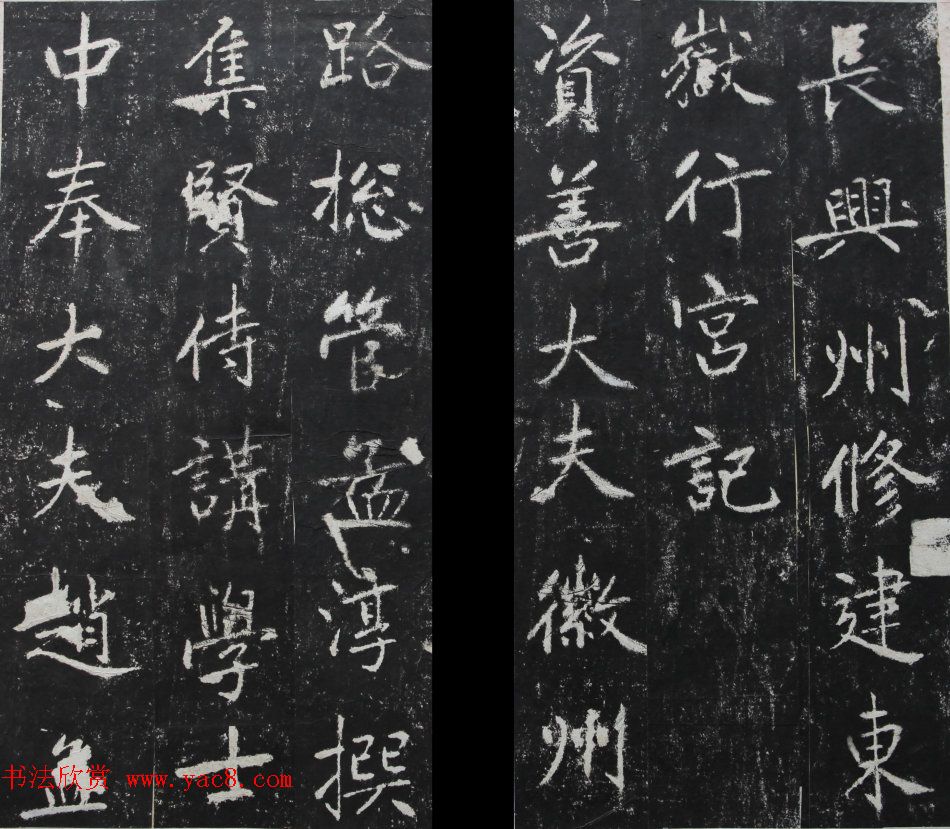 長興州修建東
嶽行宮記
資善大夫徽州
路捴管孟淳撰
集賢侍講學士
中奉大夫趙孟
书法欣赏 www.yac8.com